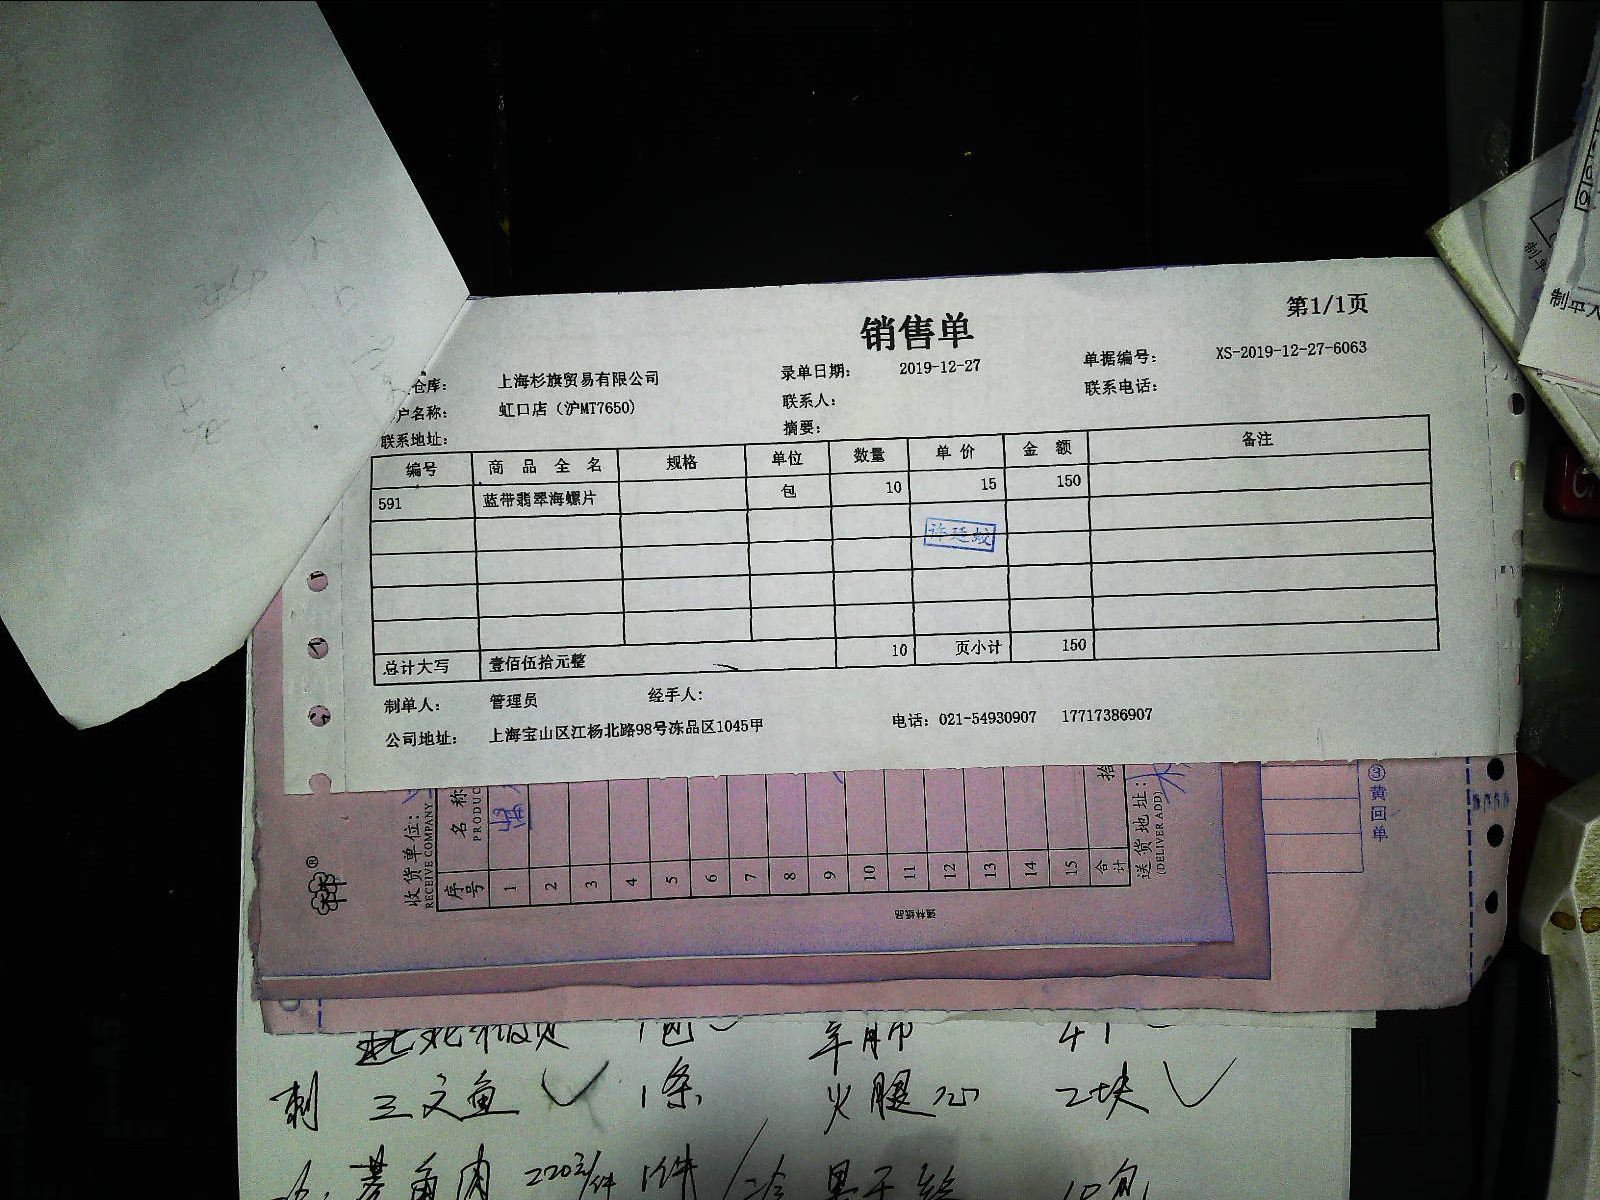 销售单
第1/1页
仓库： 上海杉旗贸易有限公司 录单日期： 2019-12-27 单据编号： XS-2019-12-27-6063
户名称： 虹口店（沪MT7650） 联系人： 联系电话：
联系地址： 摘要：
编号 商品全名 规格 单位 数量 单价 金额 备注
591 蓝带翡翠海螺片 包 10 15 150
总计大写 壹佰伍拾元整 10 页小计 150
制单人： 管理员 经手人：
公司地址： 上海宝山区江杨北路98号冻品区1045甲 电话：021-54930907 17717386907
收货单位：
RECEIVE COMPANY
序号 名称
PRODUC
1
2
3
4
5
6
7
8
9
10
11
12
13
14
15
合计 拾
送货地址：
(DELIVER ADD)
③黄回单
羊肺
刺 三文鱼 1条 火腿 2块
菱角肉 220元/件 1件 10包